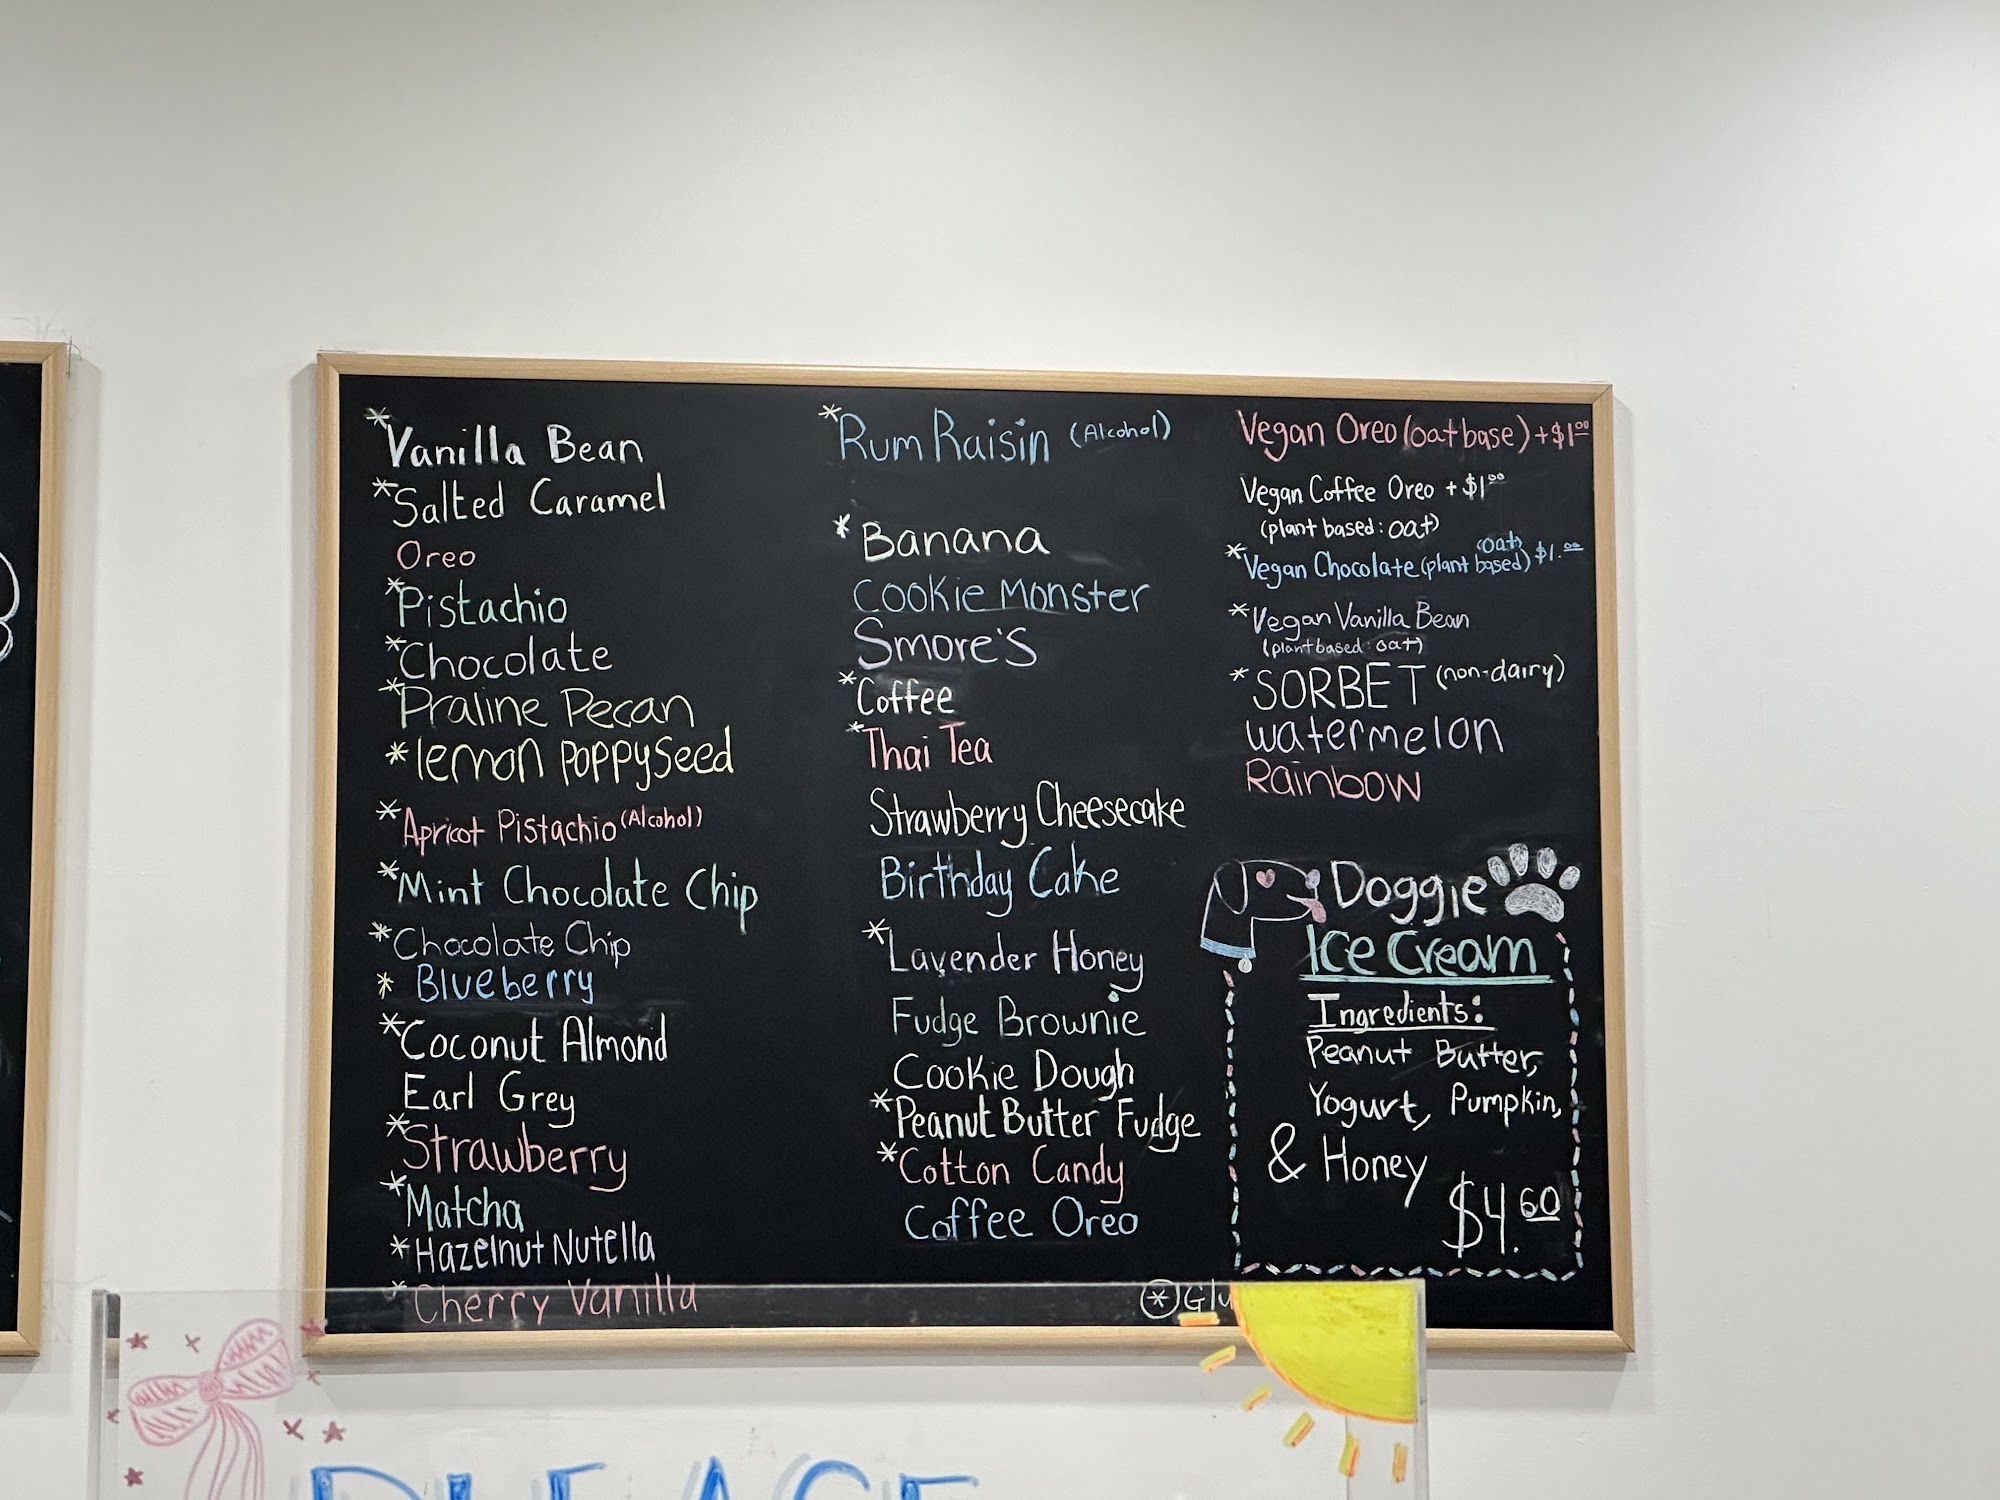 *Vanilla Bean
*Salted Caramel
Oreo
*Pistachio
*Chocolate
*Praline Pecan
*lemon poppyseed
*Apricot Pistachio (Alcohol)
*Mint Chocolate Chip
*Chocolate Chip
*Blueberry
*Coconut Almond
Earl Grey
*Strawberry
*Matcha
*Hazelnut Nutella
*Cherry Vanilla
*Rum Raisin (Alcohol)
*Banana
Cookie Monster
Smore's
*Coffee
*Thai Tea
Strawberry Cheesecake
Birthday Cake
*Lavender Honey
Fudge Brownie
Cookie Dough
*Peanut Butter Fudge
*Cotton Candy
Coffee Oreo
Vegan Oreo (oat base) +$1.00
Vegan Coffee Oreo +$1.00
(plant based: oat)
*Vegan Chocolate (plant based) (oat) $1.00
*Vegan Vanilla Bean
(plant based: oat)
*SORBET (non-dairy)
watermelon
Rainbow
Doggie
Ice Cream
Ingredients:
Peanut Butter,
Yogurt, Pumpkin,
& Honey
$4.60
PLEASE